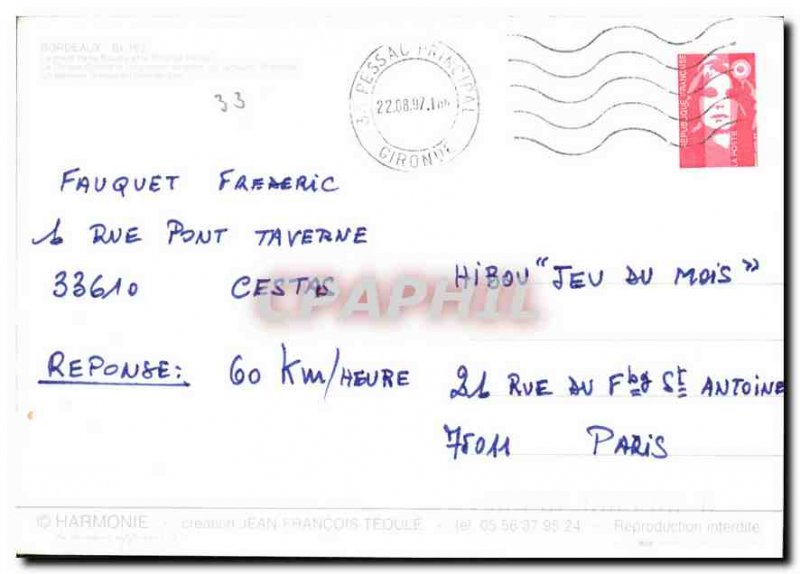 BORDEAUX
33
33 PESSAC PRINCIPAL
22.08.97
GIRONDE
REPUBLIQUE FRANCAISE
LA POSTE
FAUQUET FREDERIC
1 RUE PONT TAVERNE
33610 CESTAS
REPONSE: 60 Km/HEURE
HIBOU "JEU DU MOIS"
21 RUE DU Fbg St ANTOINE
75011 PARIS
CPAPHIL
© HARMONIE - création JEAN FRANÇOIS TEOULE - tel 05 56 37 95 24 - Reproduction interdite